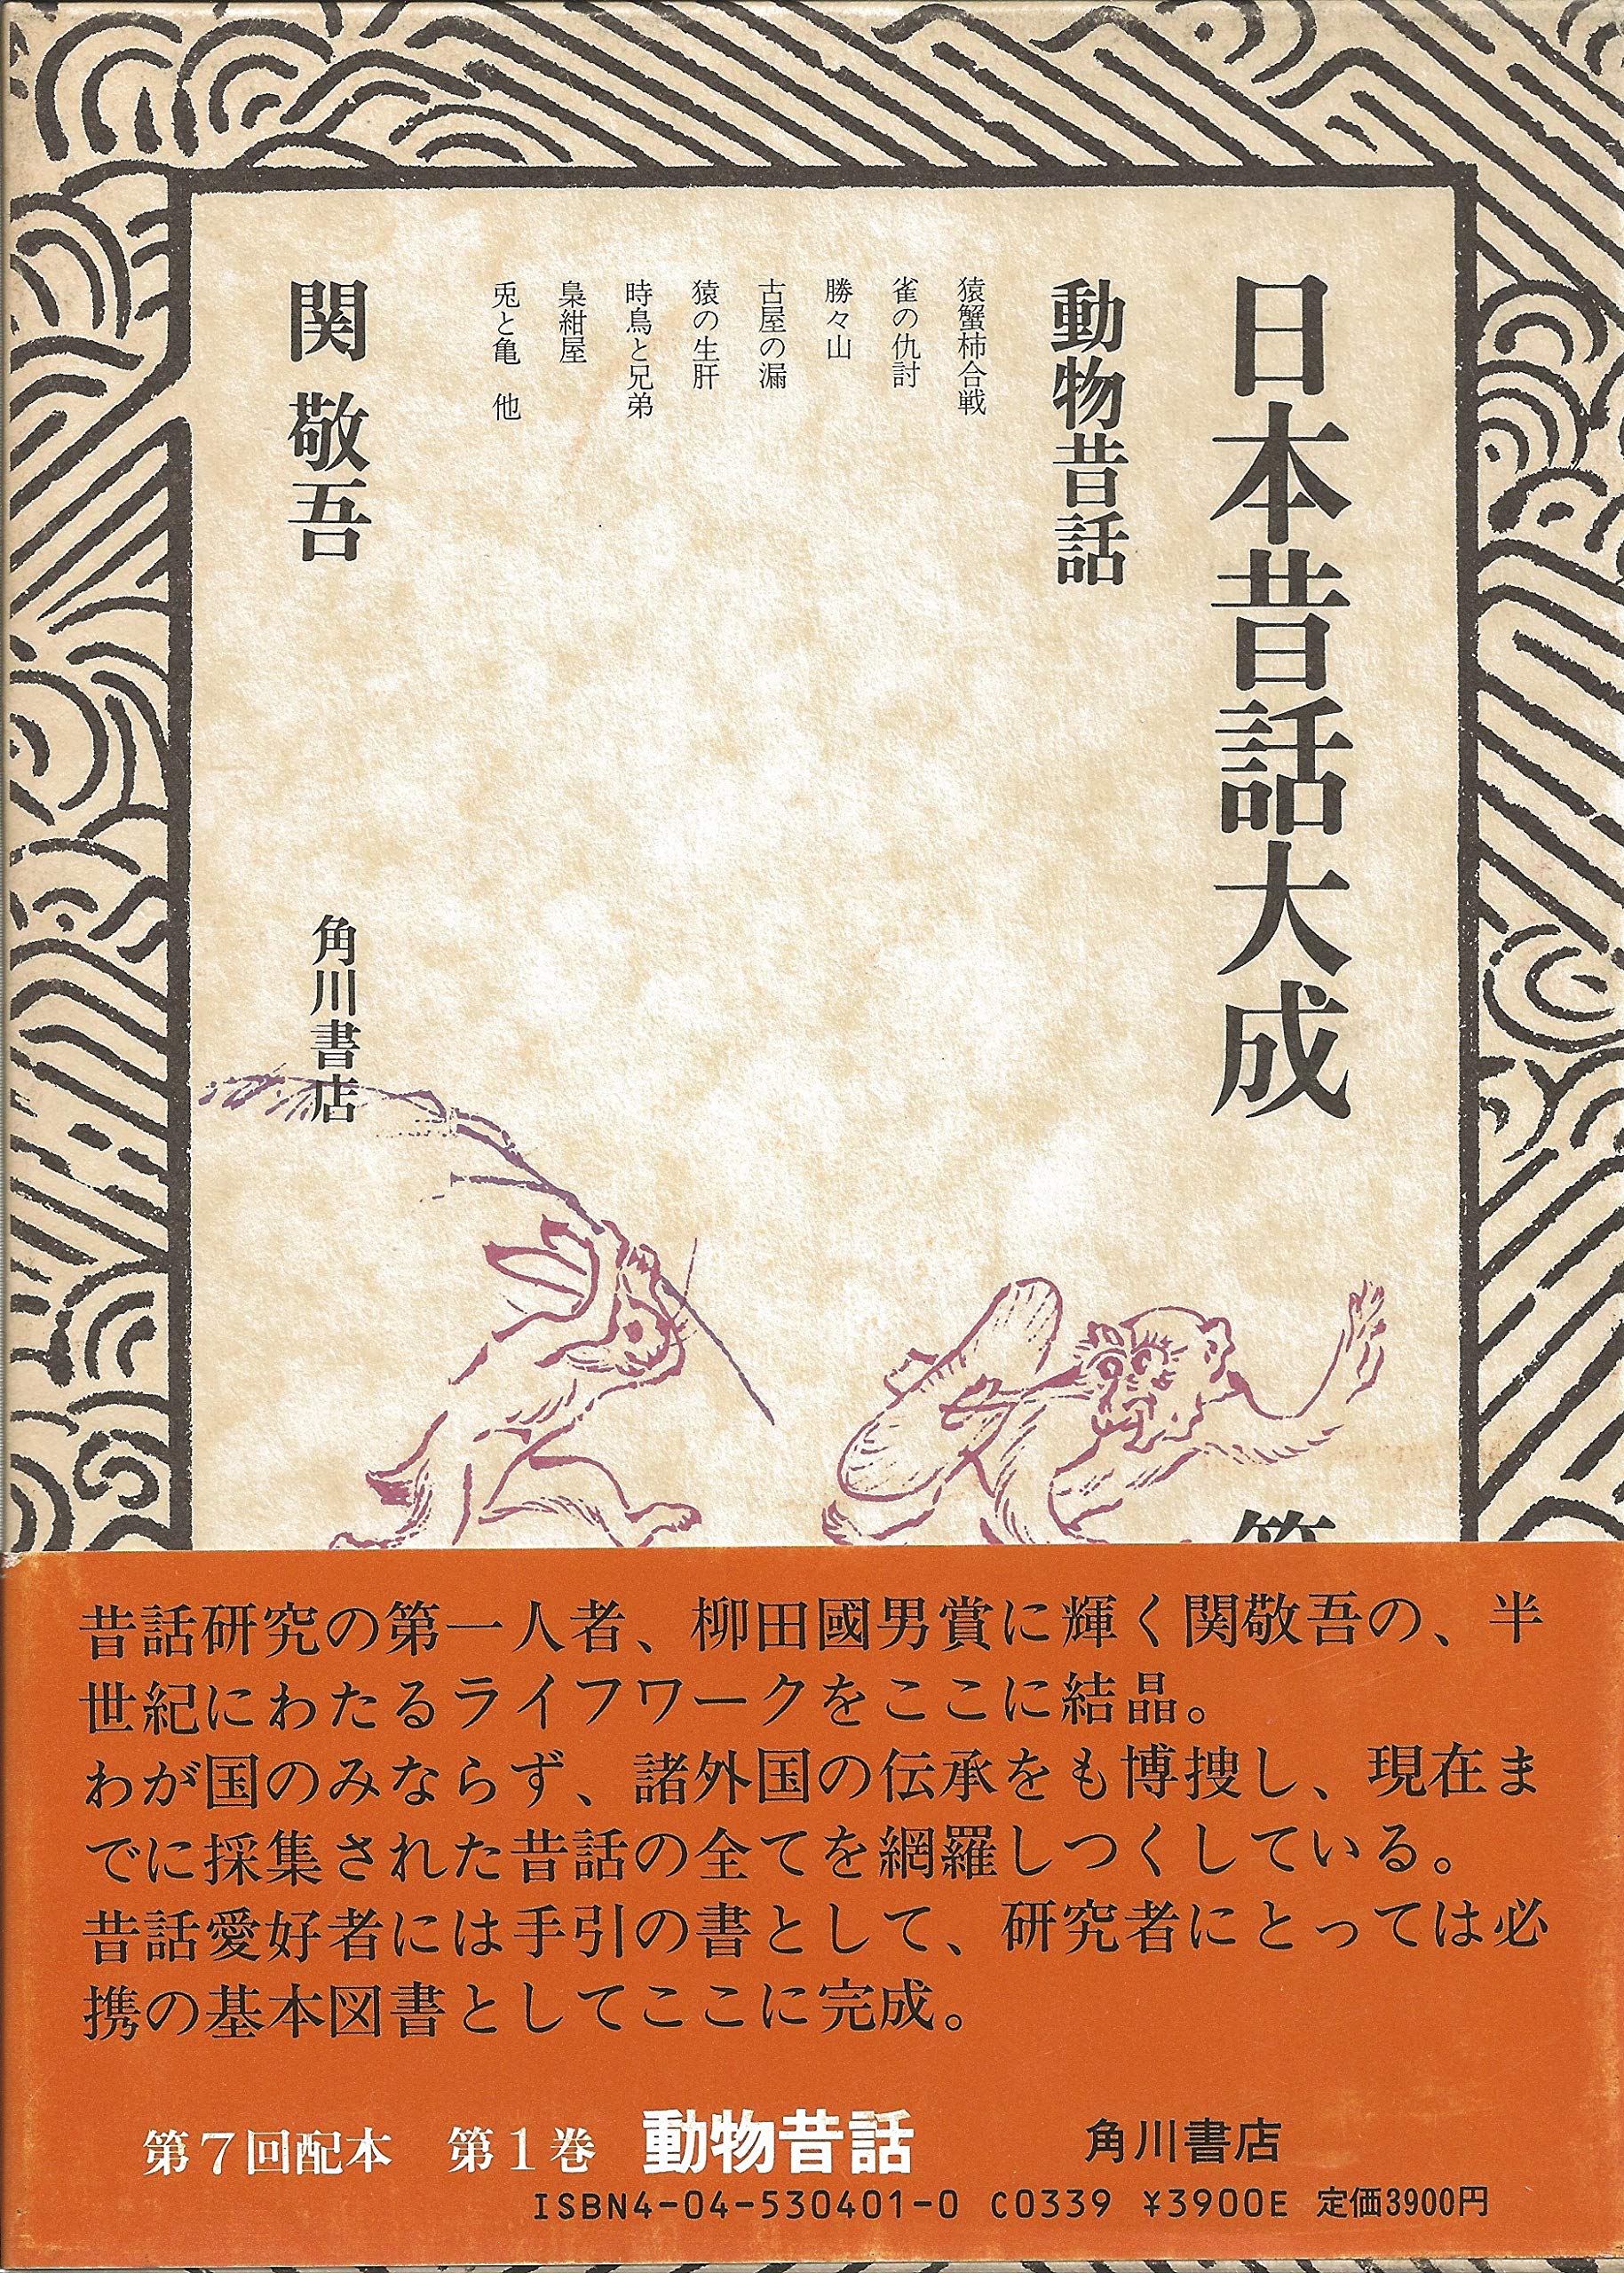 日本昔話大成
第
動物昔話
猿蟹柿合戦
雀の仇討
勝々山
古屋の漏
猿の生肝
時鳥と兄弟
梟紺屋
兎と亀 他
関 敬吾
角川書店
昔話研究の第一人者、柳田國男賞に輝く関敬吾の、半
世紀にわたるライフワークをここに結晶。
わが国のみならず、諸外国の伝承をも博捜し、現在ま
でに採集された昔話の全てを網羅しつくしている。
昔話愛好者には手引の書として、研究者にとっては必
携の基本図書としてここに完成。
第7回配本 第1巻 動物昔話 角川書店
ISBN4-04-530401-0 C0339 ¥3900E 定価3900円